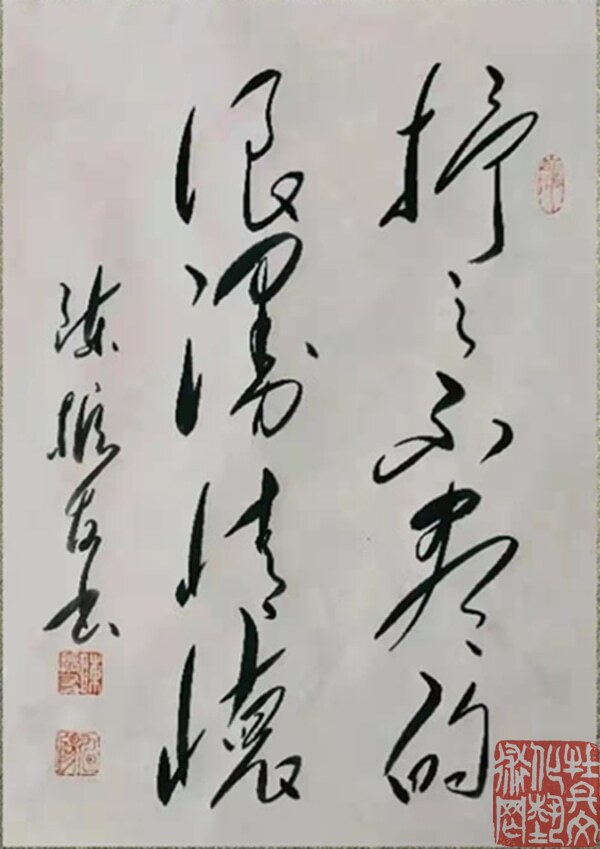 抒之不尽的
浪漫情懷
陈振友书